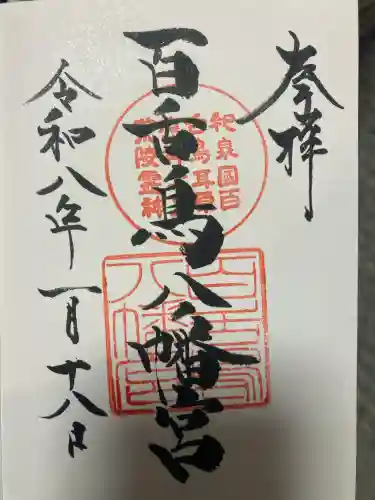 奉拝
百舌鳥八幡宮
令和八年一月十八日
和泉国百
舌鳥耳原
陵霊神
百舌鳥
八幡宮